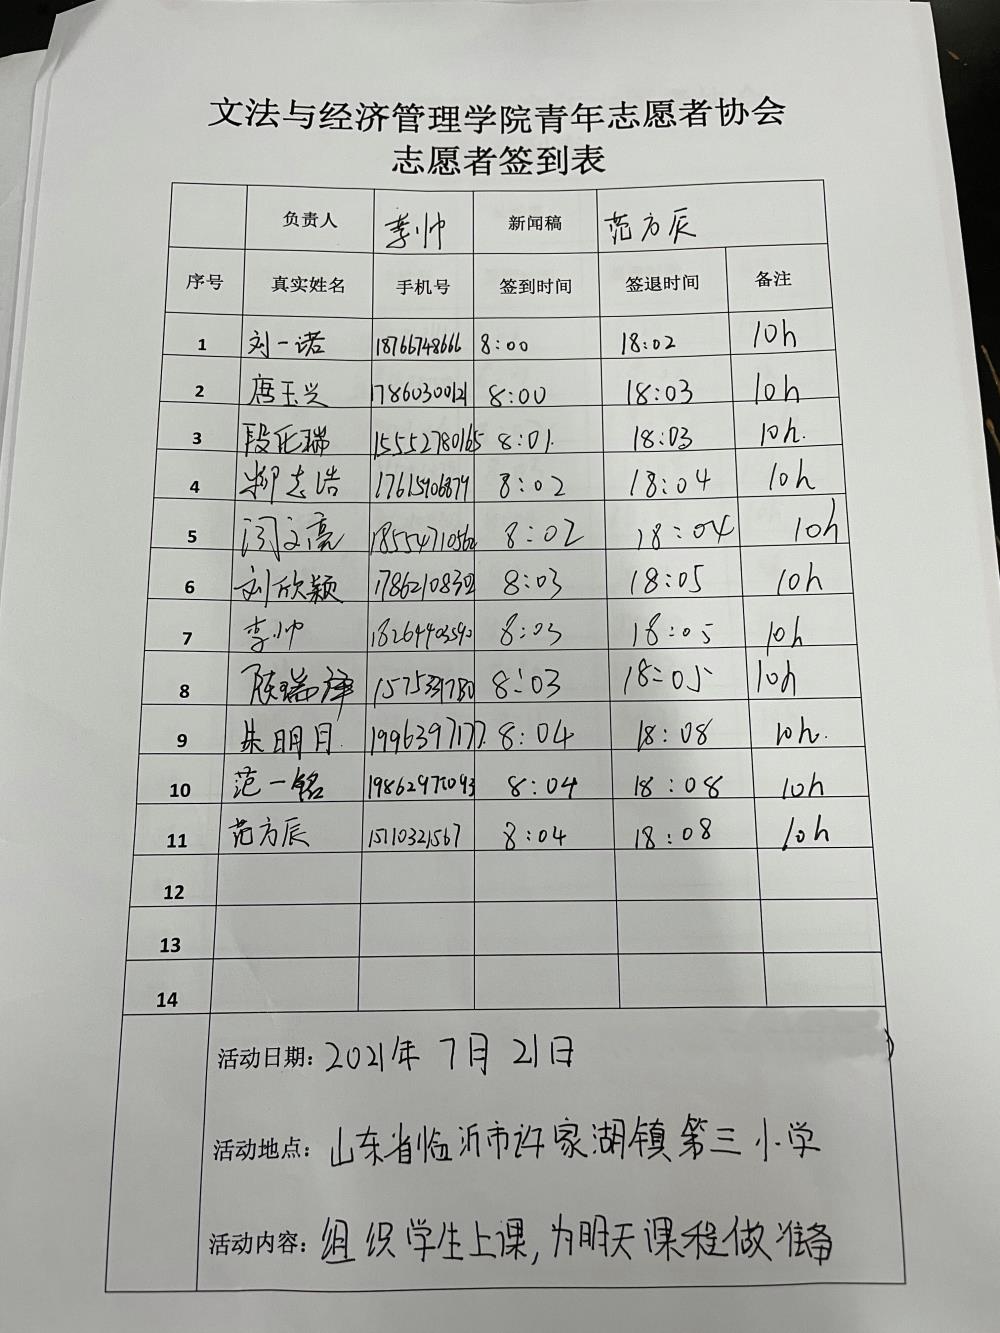 文法与经济管理学院青年志愿者协会
志愿者签到表
负责人 李帅 新闻稿 范方辰
序号 真实姓名 手机号 签到时间 签退时间 备注
1 刘一诺 18766748666 8:00 18:02 10h
2 唐玉兴 17860300121 8:00 18:03 10h
3 段化瑞 15552780165 8:01. 18:03 10h.
4 柳志浩 17615906879 8:02 18:04 10h
5 闵文亮 18554710562 8:02 18:04 10h
6 刘欣颖 8:03 18:05 10h
7 李帅 18264403590 8:03 18:05 10h
8 陈瑞泽 8:03 18:05 10h
9 朱明月. 8:04 18:08 10h.
10 范一铭 8:04 18:08 10h
11 范方辰 15110321567 8:04 18:08 10h
12
13
14
活动日期: 2021年7月21日
活动地点: 山东省临沂市许家湖镇第三小学
活动内容: 组织学生上课,为明天课程做准备